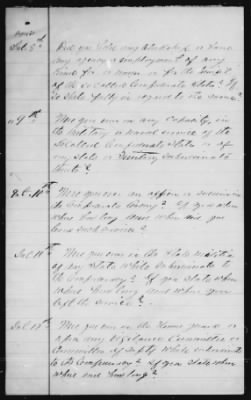 Int. 8th Did you hold any clerkship or have
any agency or employment of any
kind for a or in or for the
of the so called Confederate State? If
so State fully in regard to the same?
" 9th Were you ever in any Capacity, in
the military or naval service of the
So Called Confederate State or of
any State or Territory Subordinate
thereto?
Int. 10th Were you ever an officer or
the Confederate Army? If you when
when how long and when did you
leave such service?
Int. 11th Were you ever in the State militia
of any State while Subordinate to
the Confederacy? If you State when
where how long, and when you
left the service?
Int. 12th Were you ever in the Home guard or
upon any Vigilance Committee or
Committee of Safety while
to the Confederacy? If you State when
where and how long?